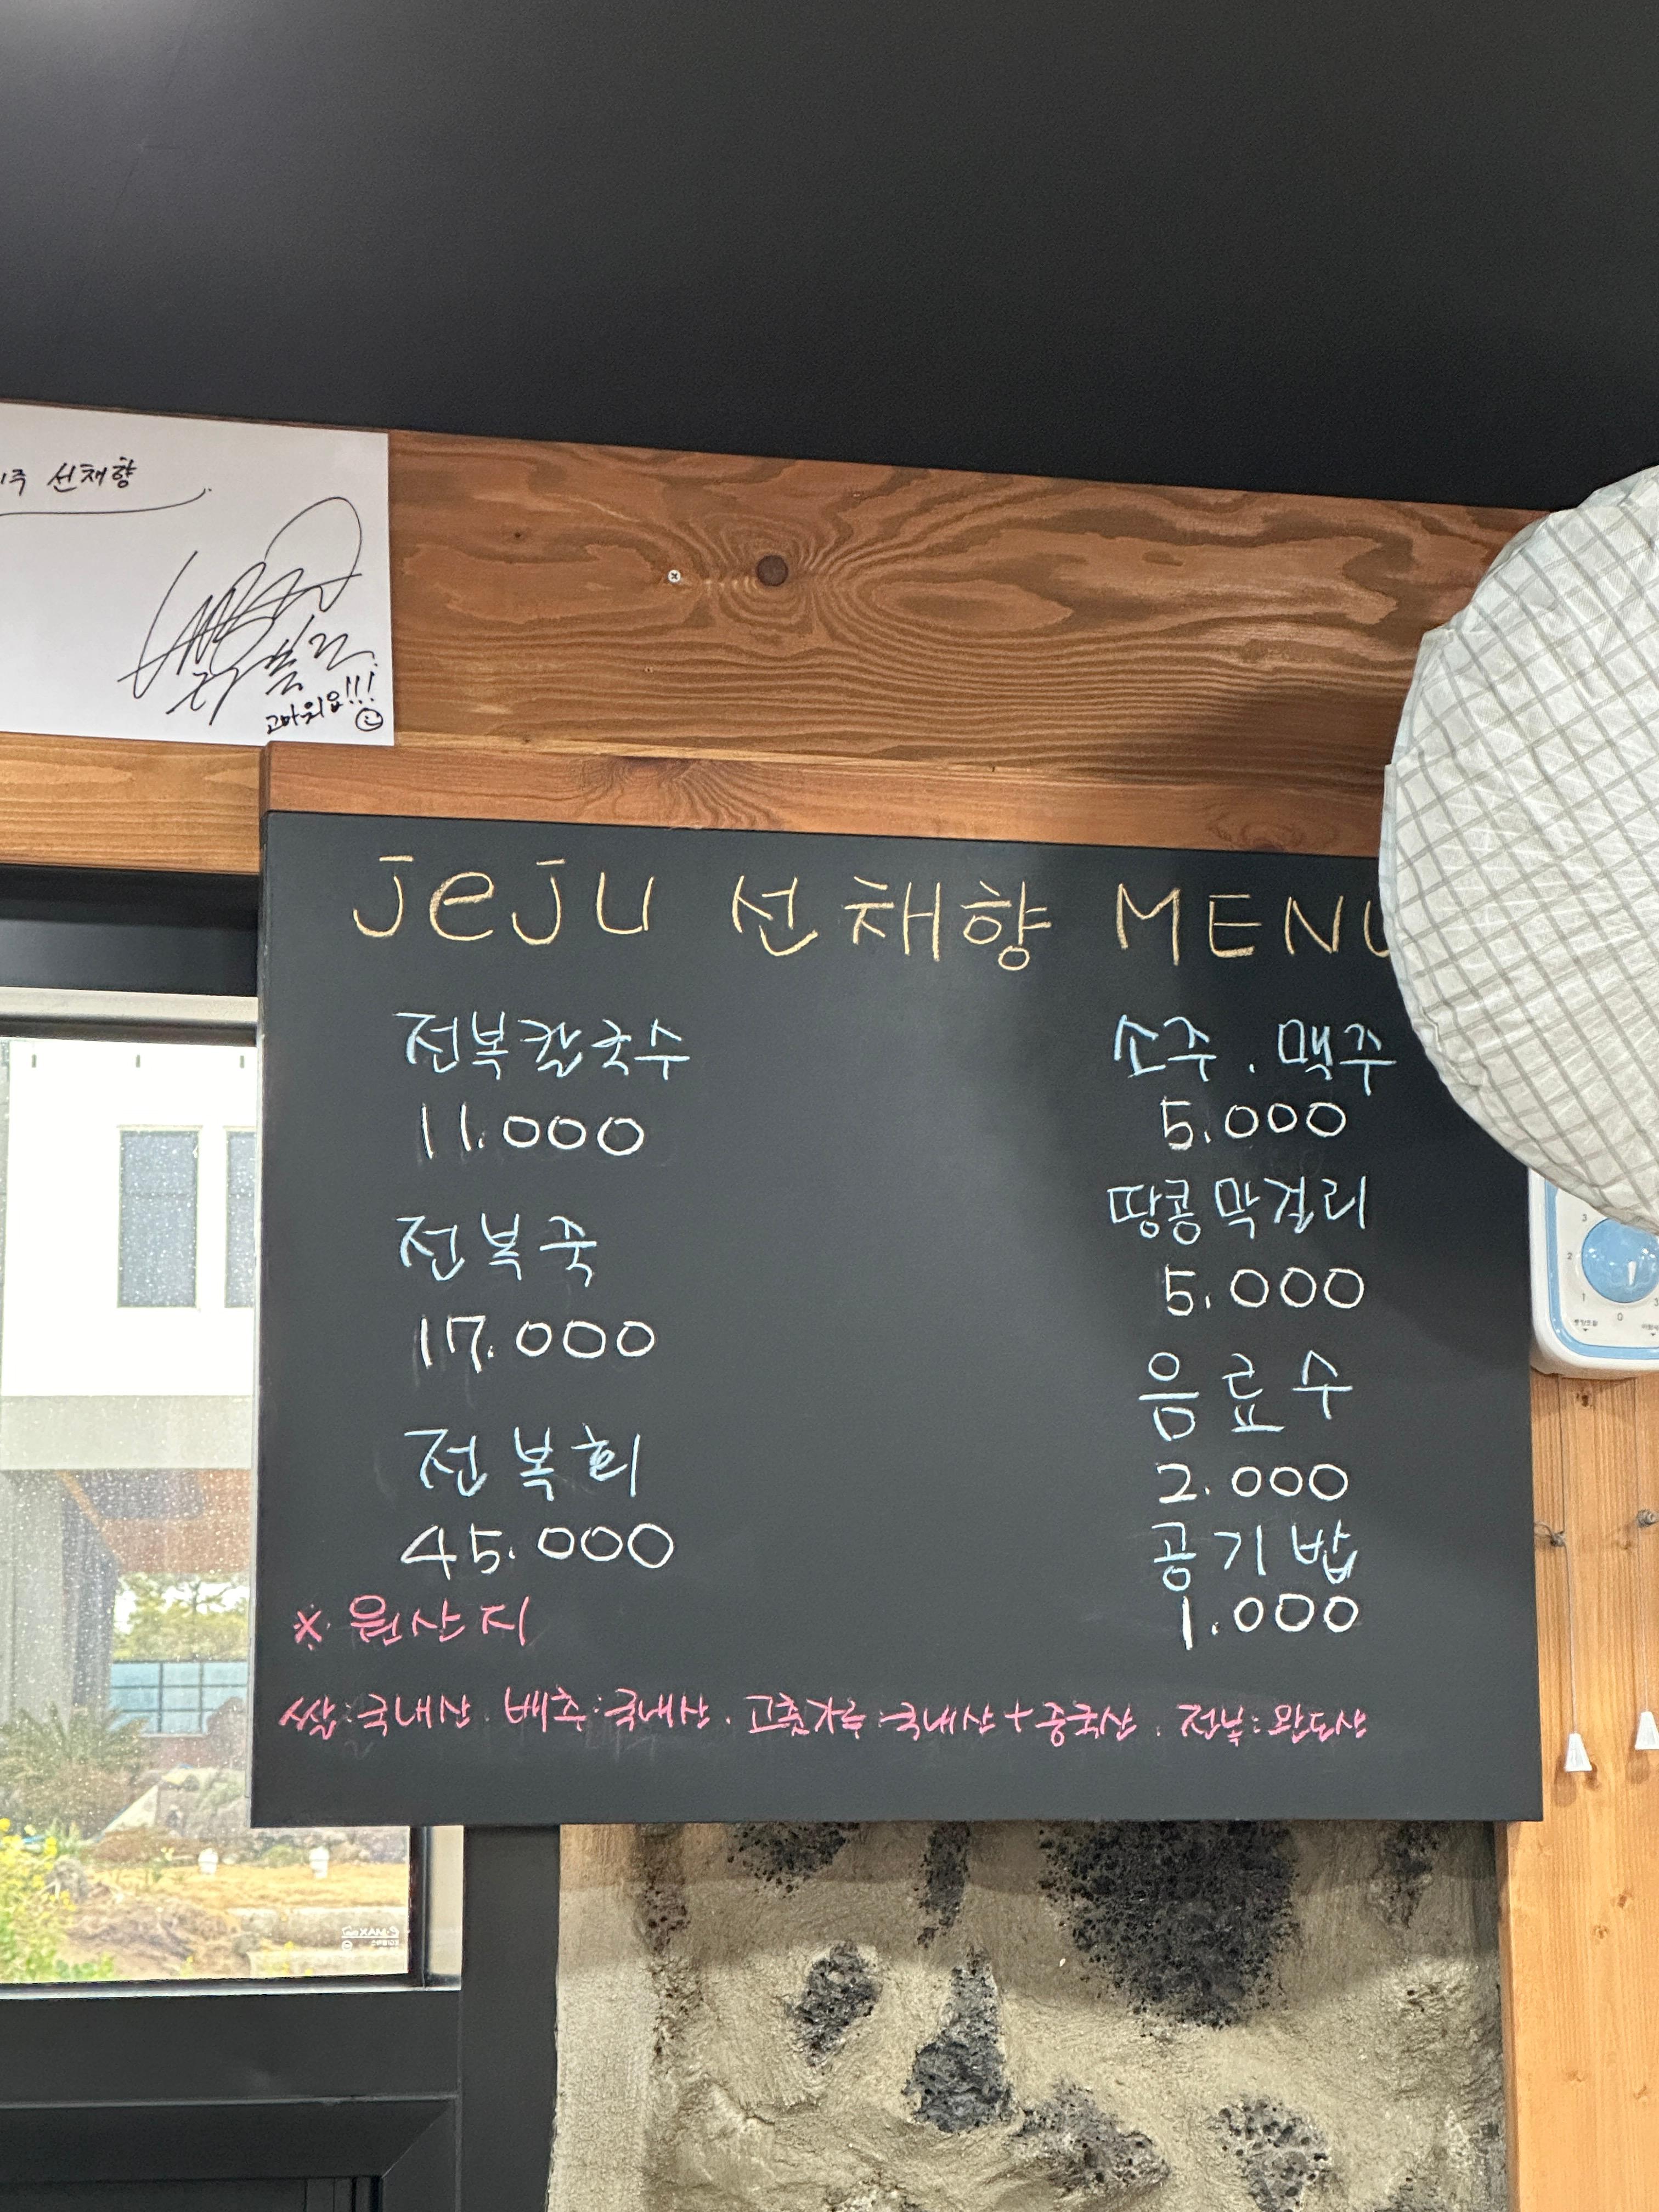 선채향
고마워요!!!
jeju 선채향 MENU
전복칼국수
11.000
전복죽
17.000
전복회
45.000
소주 . 맥주
5.000
땅콩막걸리
5.000
음료수
2.000
공기밥
1.000
※ 원산지
쌀:국내산 . 배추:국내산 . 고춧가루:국내산+중국산 . 전복:완도산